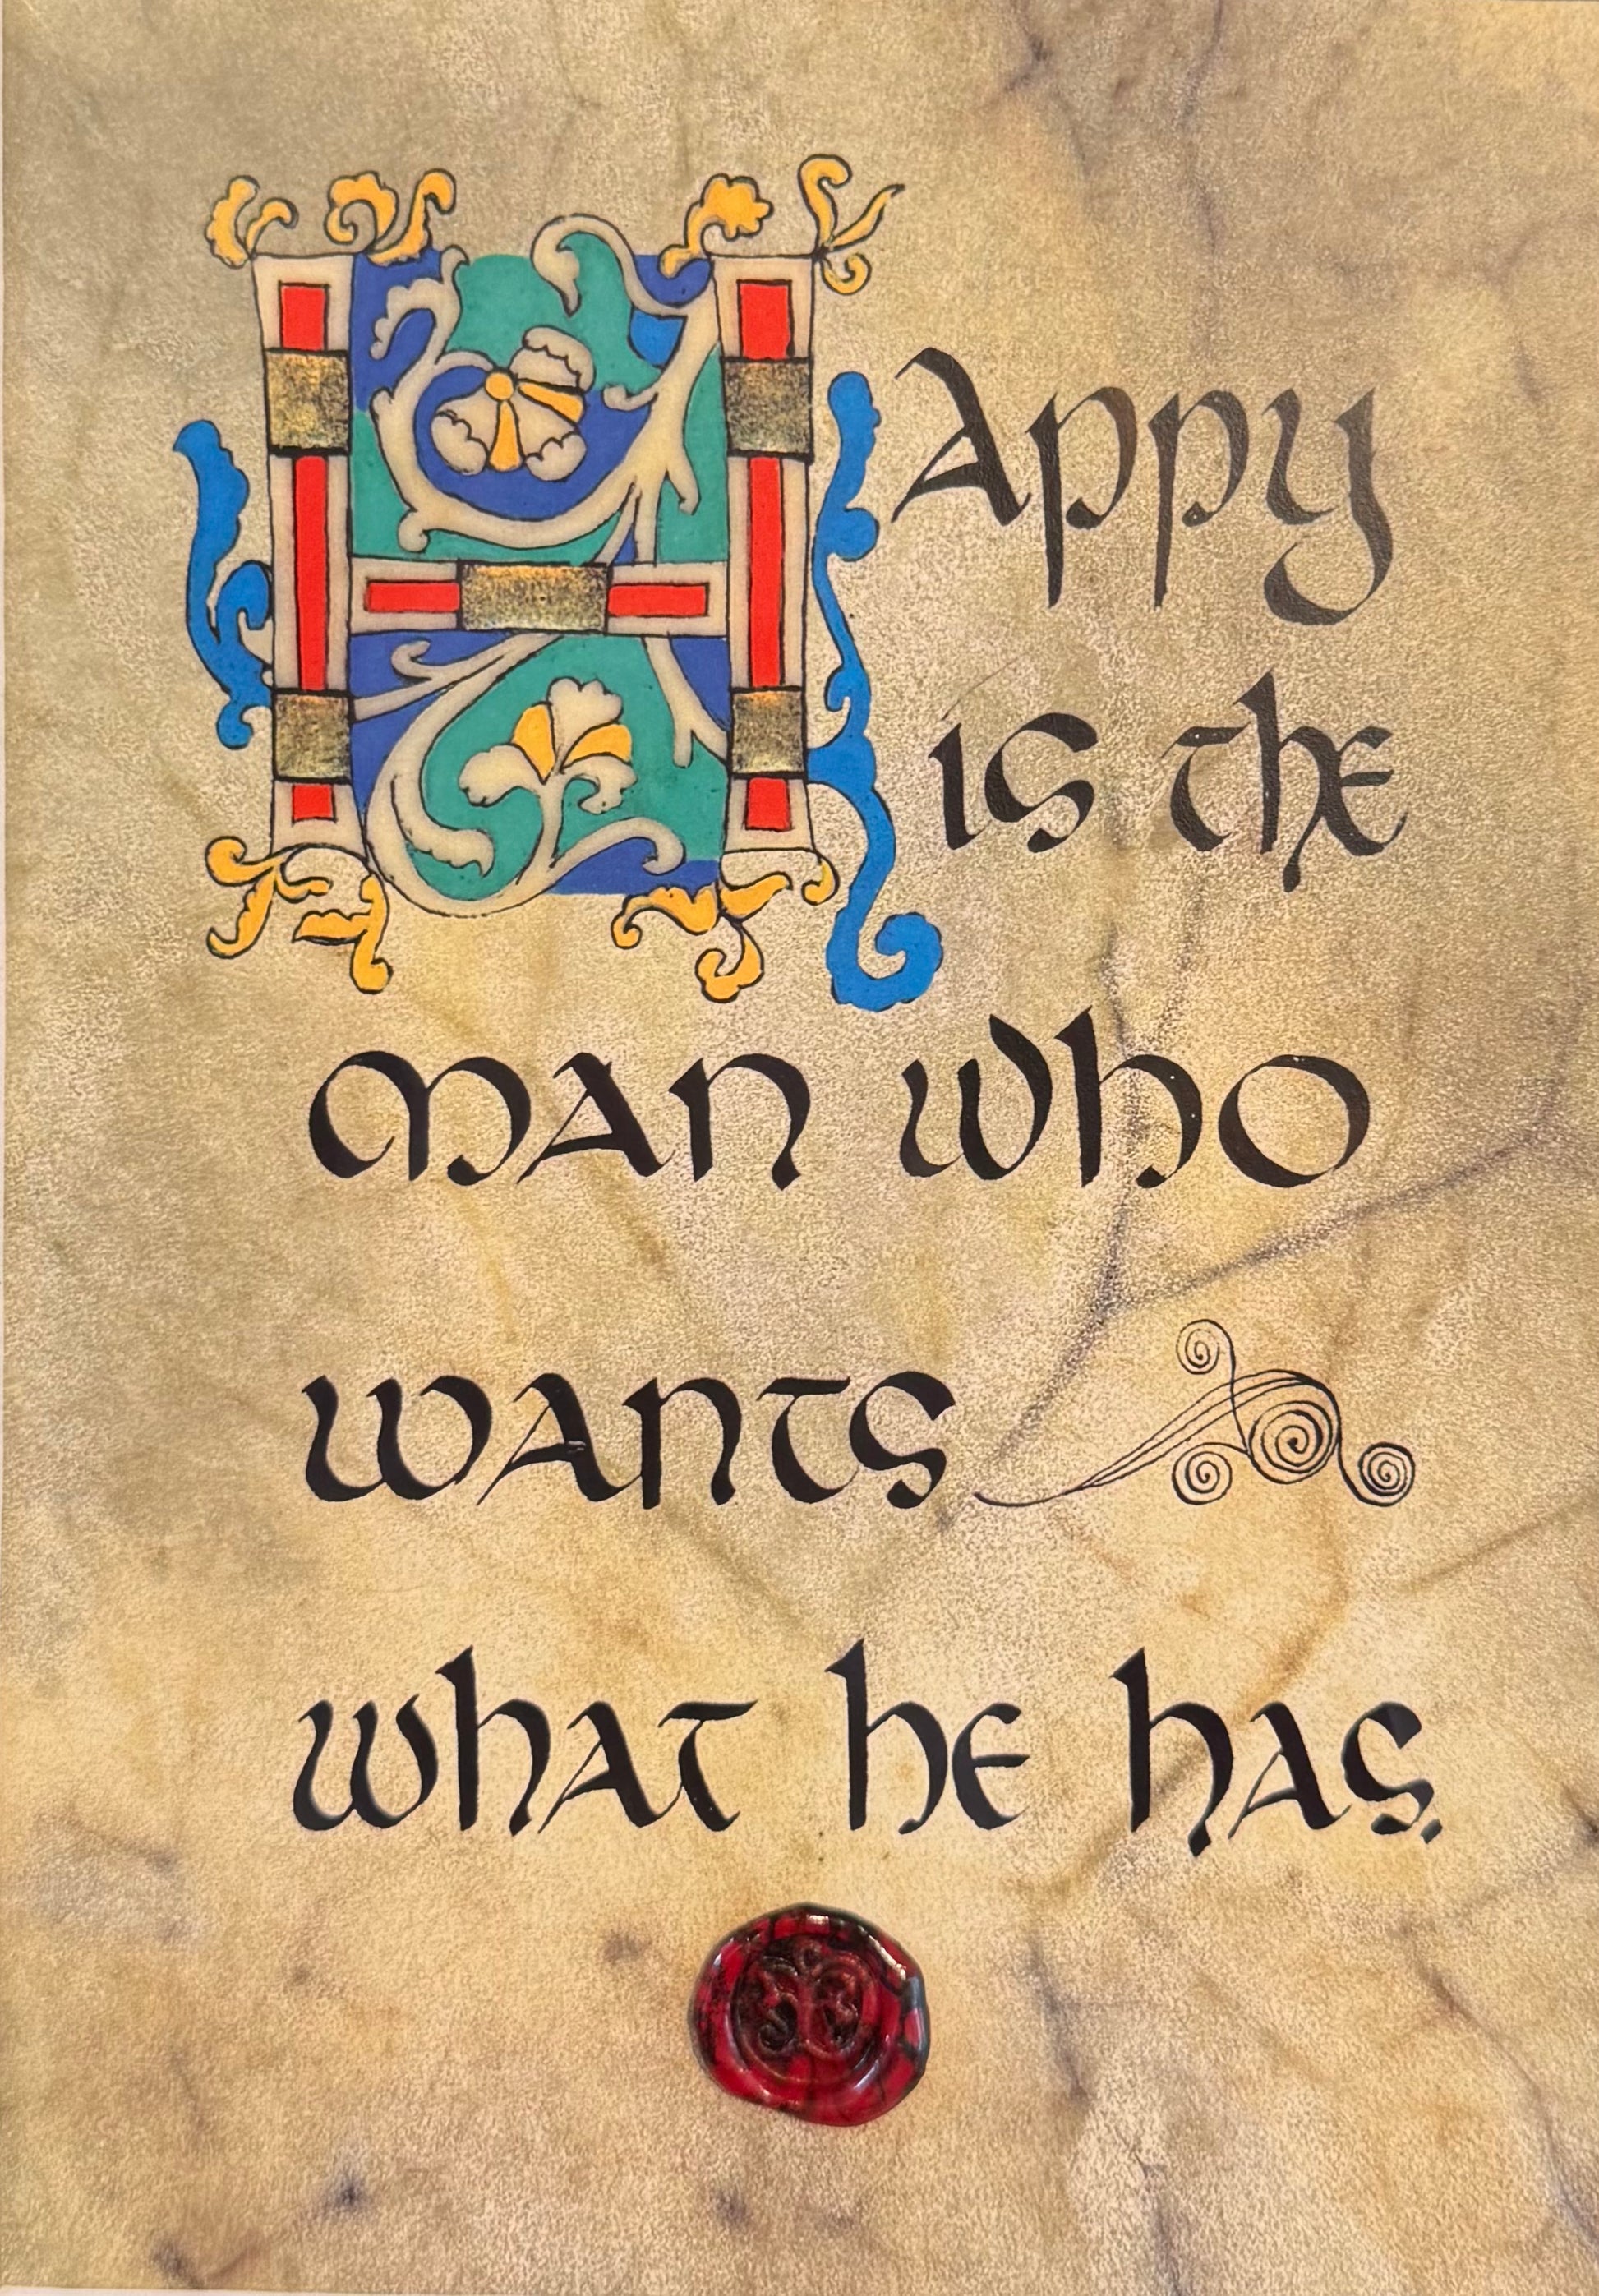 Happy
is the
man who
wants
what he has.